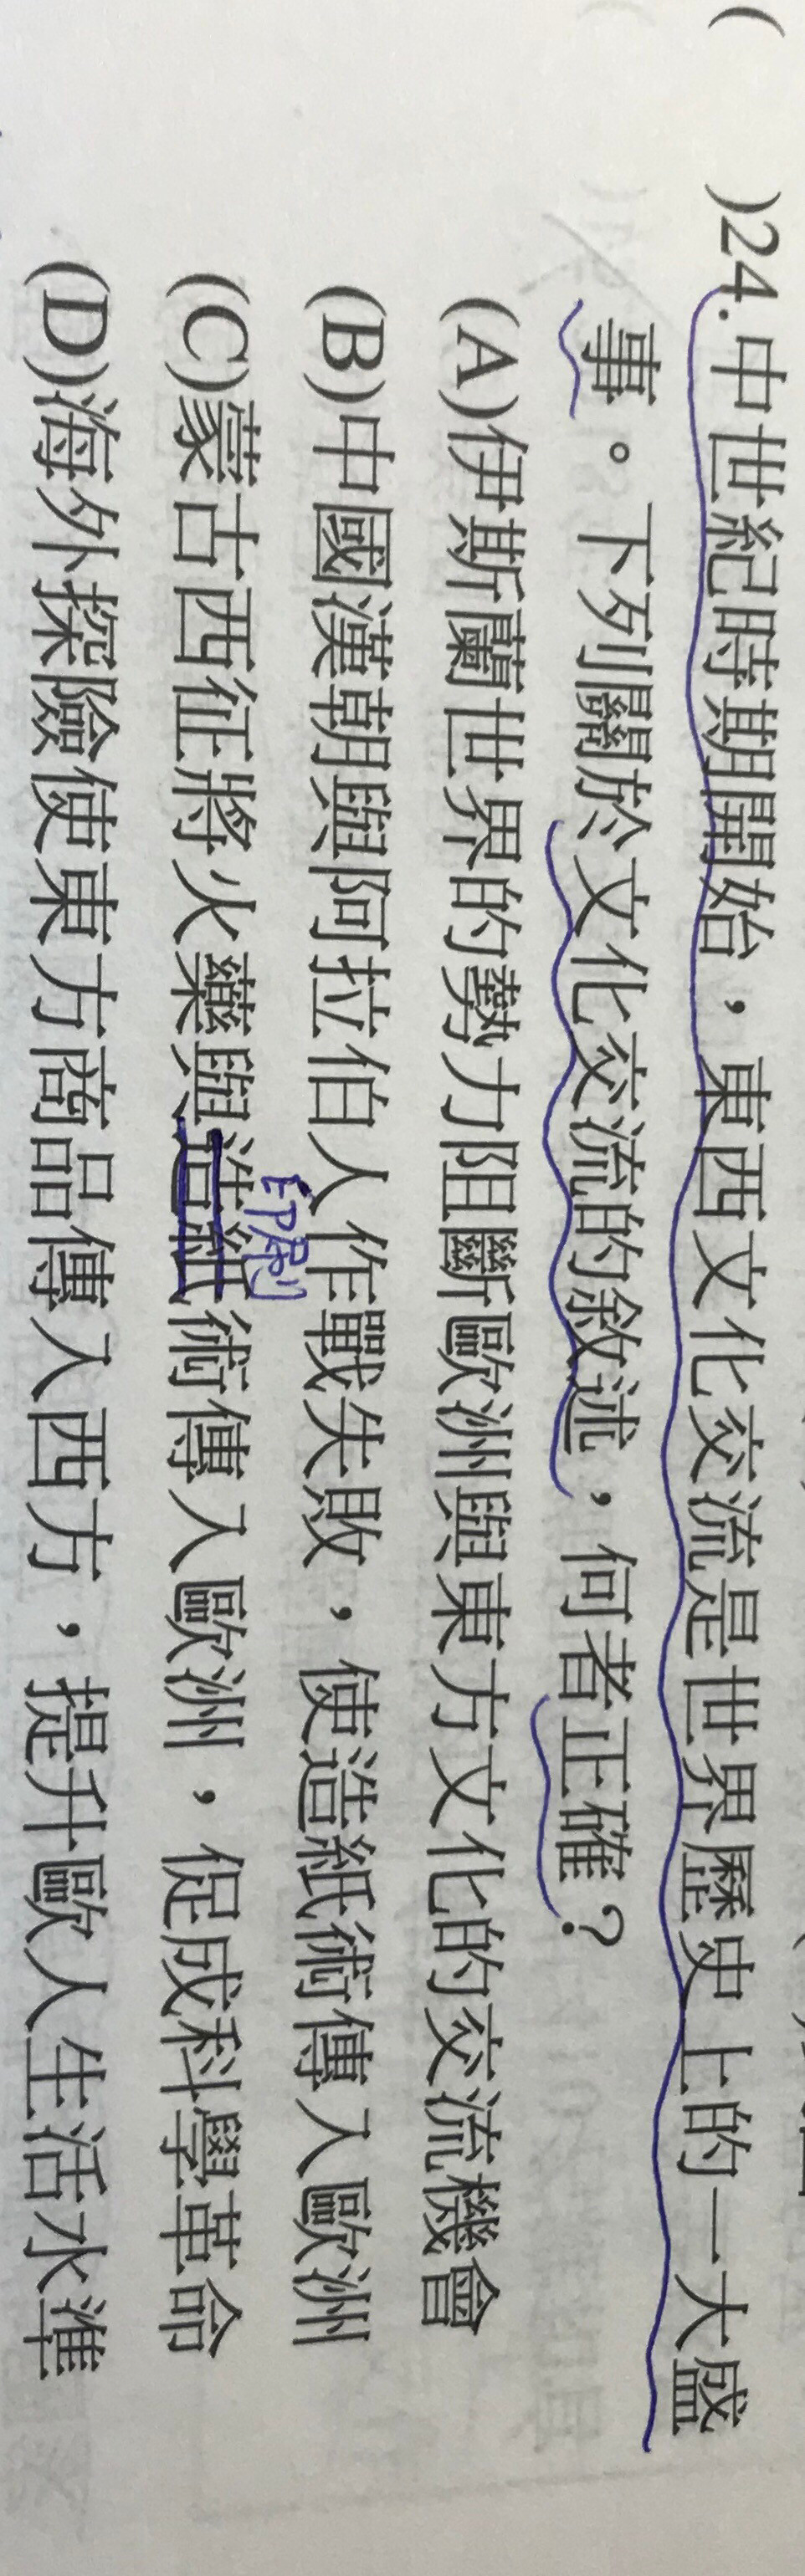 (　)24.中世紀時期開始，東西文化交流是世界歷史上的一大盛
事。下列關於文化交流的敘述，何者正確？
(A)伊斯蘭世界的勢力阻斷歐洲與東方文化的交流機會
(B)中國漢朝與阿拉伯人作戰失敗，使造紙術傳入歐洲
印刷
(C)蒙古西征將火藥與造紙術傳入歐洲，促成科學革命
(D)海外探險使東方商品傳入西方，提升歐人生活水準